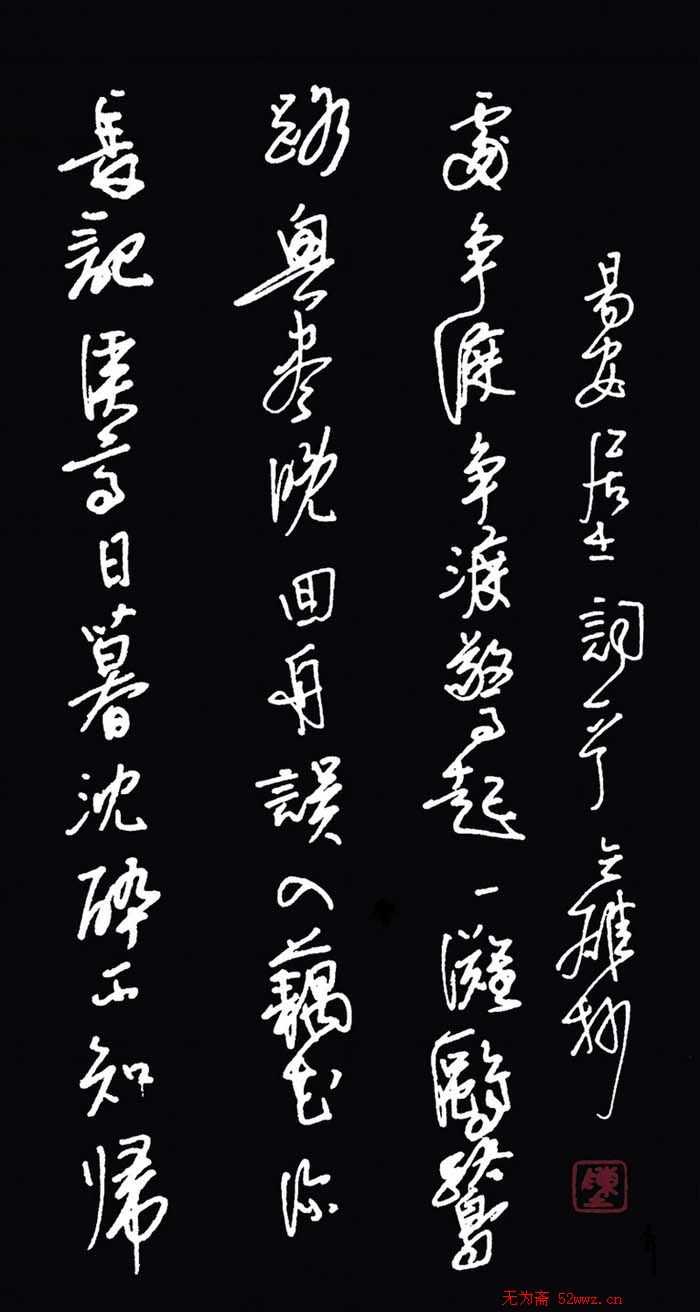 長記溪亭日暮沈醉不知帰
路興尽晚回舟誤入藕花深
處争渡争渡驚起一灘鷗鷺
易安居士詞一首 雄抄
无为斋 52wwz.cn